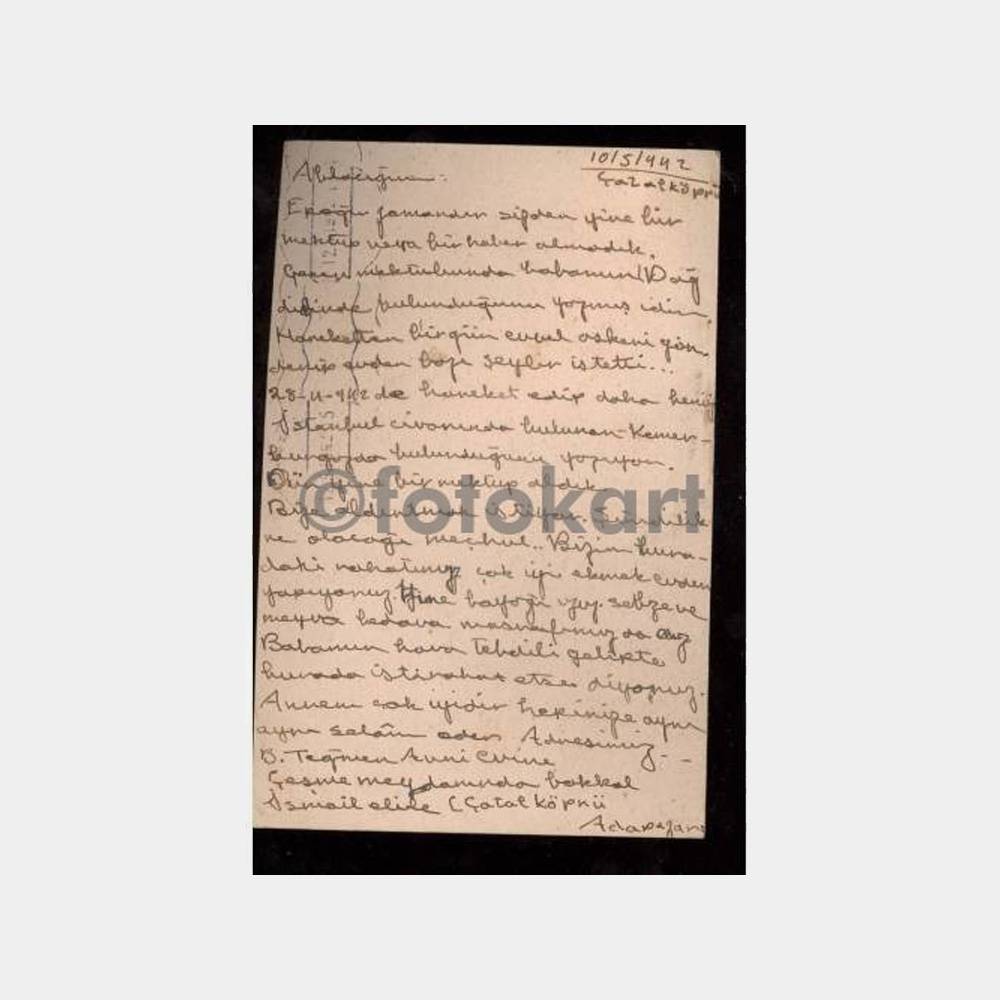 10/5/942
Çatalköprü
Ablacığım:
Epeğir zamandır sizden yine bir
mektup veya bir haber almadık.
Geçen mektubunda babamın Dağ
dibinde bulunduğunu yazmış idin.
Hareketten birgün evvel askeri gön
derip evden bazı şeyler istetti...
28-4-942 de hareket edip daha henüz
İstanbul civarında bulunan Kemer-
burgazda bulunduğunu yazıyor.
Dün yine bir mektup aldık
Bizi aldırtmak istiyor. Şimdilik
ne olacağı meçhul.. Bizim bura-
daki rahatımız çok iyi ekmek evden
yapıyoruz. Yine bayağı ucuz. sebze ve
meyva bedava masrafımız da az
Babamın hava tebdili gelirse
burada istirahat etse diyoruz.
Annem çok iyidir hepinize ayrı
ayrı selâm eder. Adresimiz--
B. Teğmen Avni Evine
Çeşme meydanında bakkal
İsmail elile (Çatalköprü
Adapazarı
©fotokart